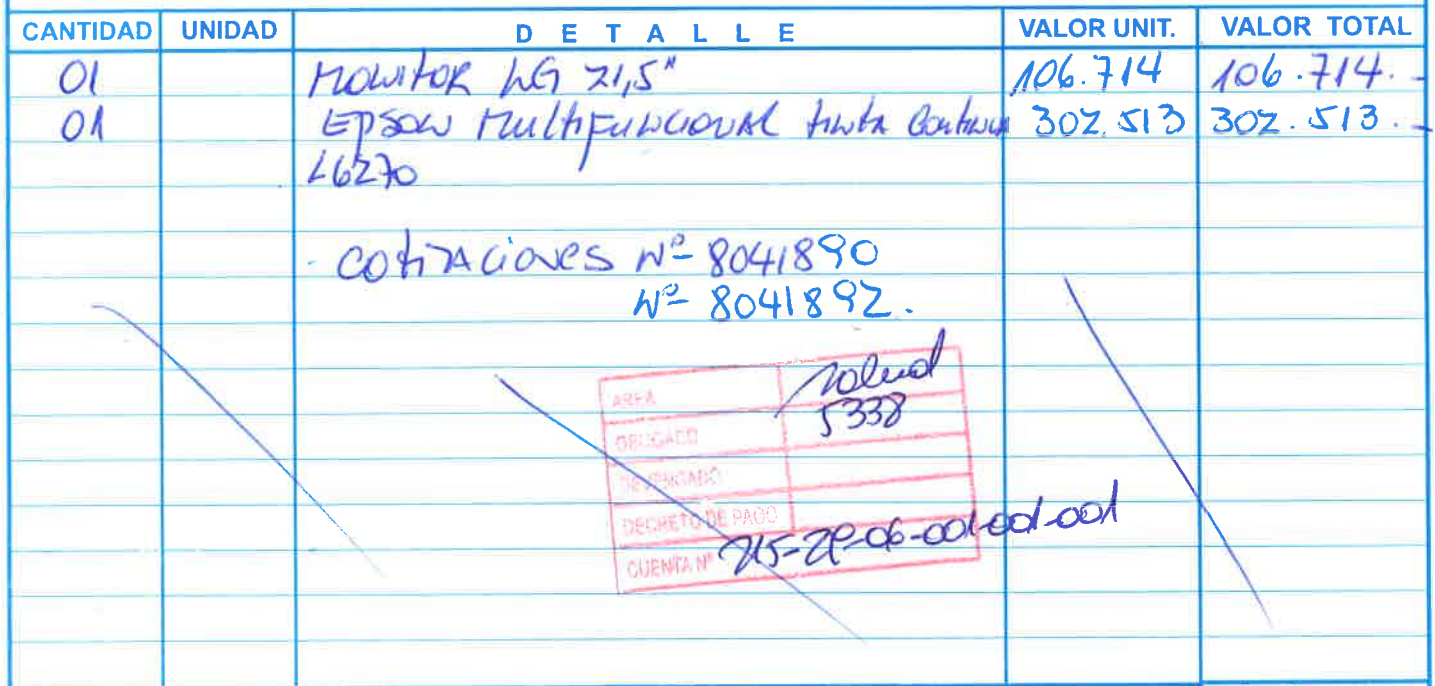 CANTIDAD UNIDAD DETALLE VALOR UNIT. VALOR TOTAL
01 MONITOR LG 21,5" 106.714 106.714.-
01 EPSON Multifuncional tinta Continua 302.513 302.513.-
L6270
- cotizaciones Nº 8041890
Nº 8041892.
AREA Salud
OBLIGADO 5338
DEVENGADO
DECRETO DE PAGO
CUENTA Nº 215-29-06-001-001-001